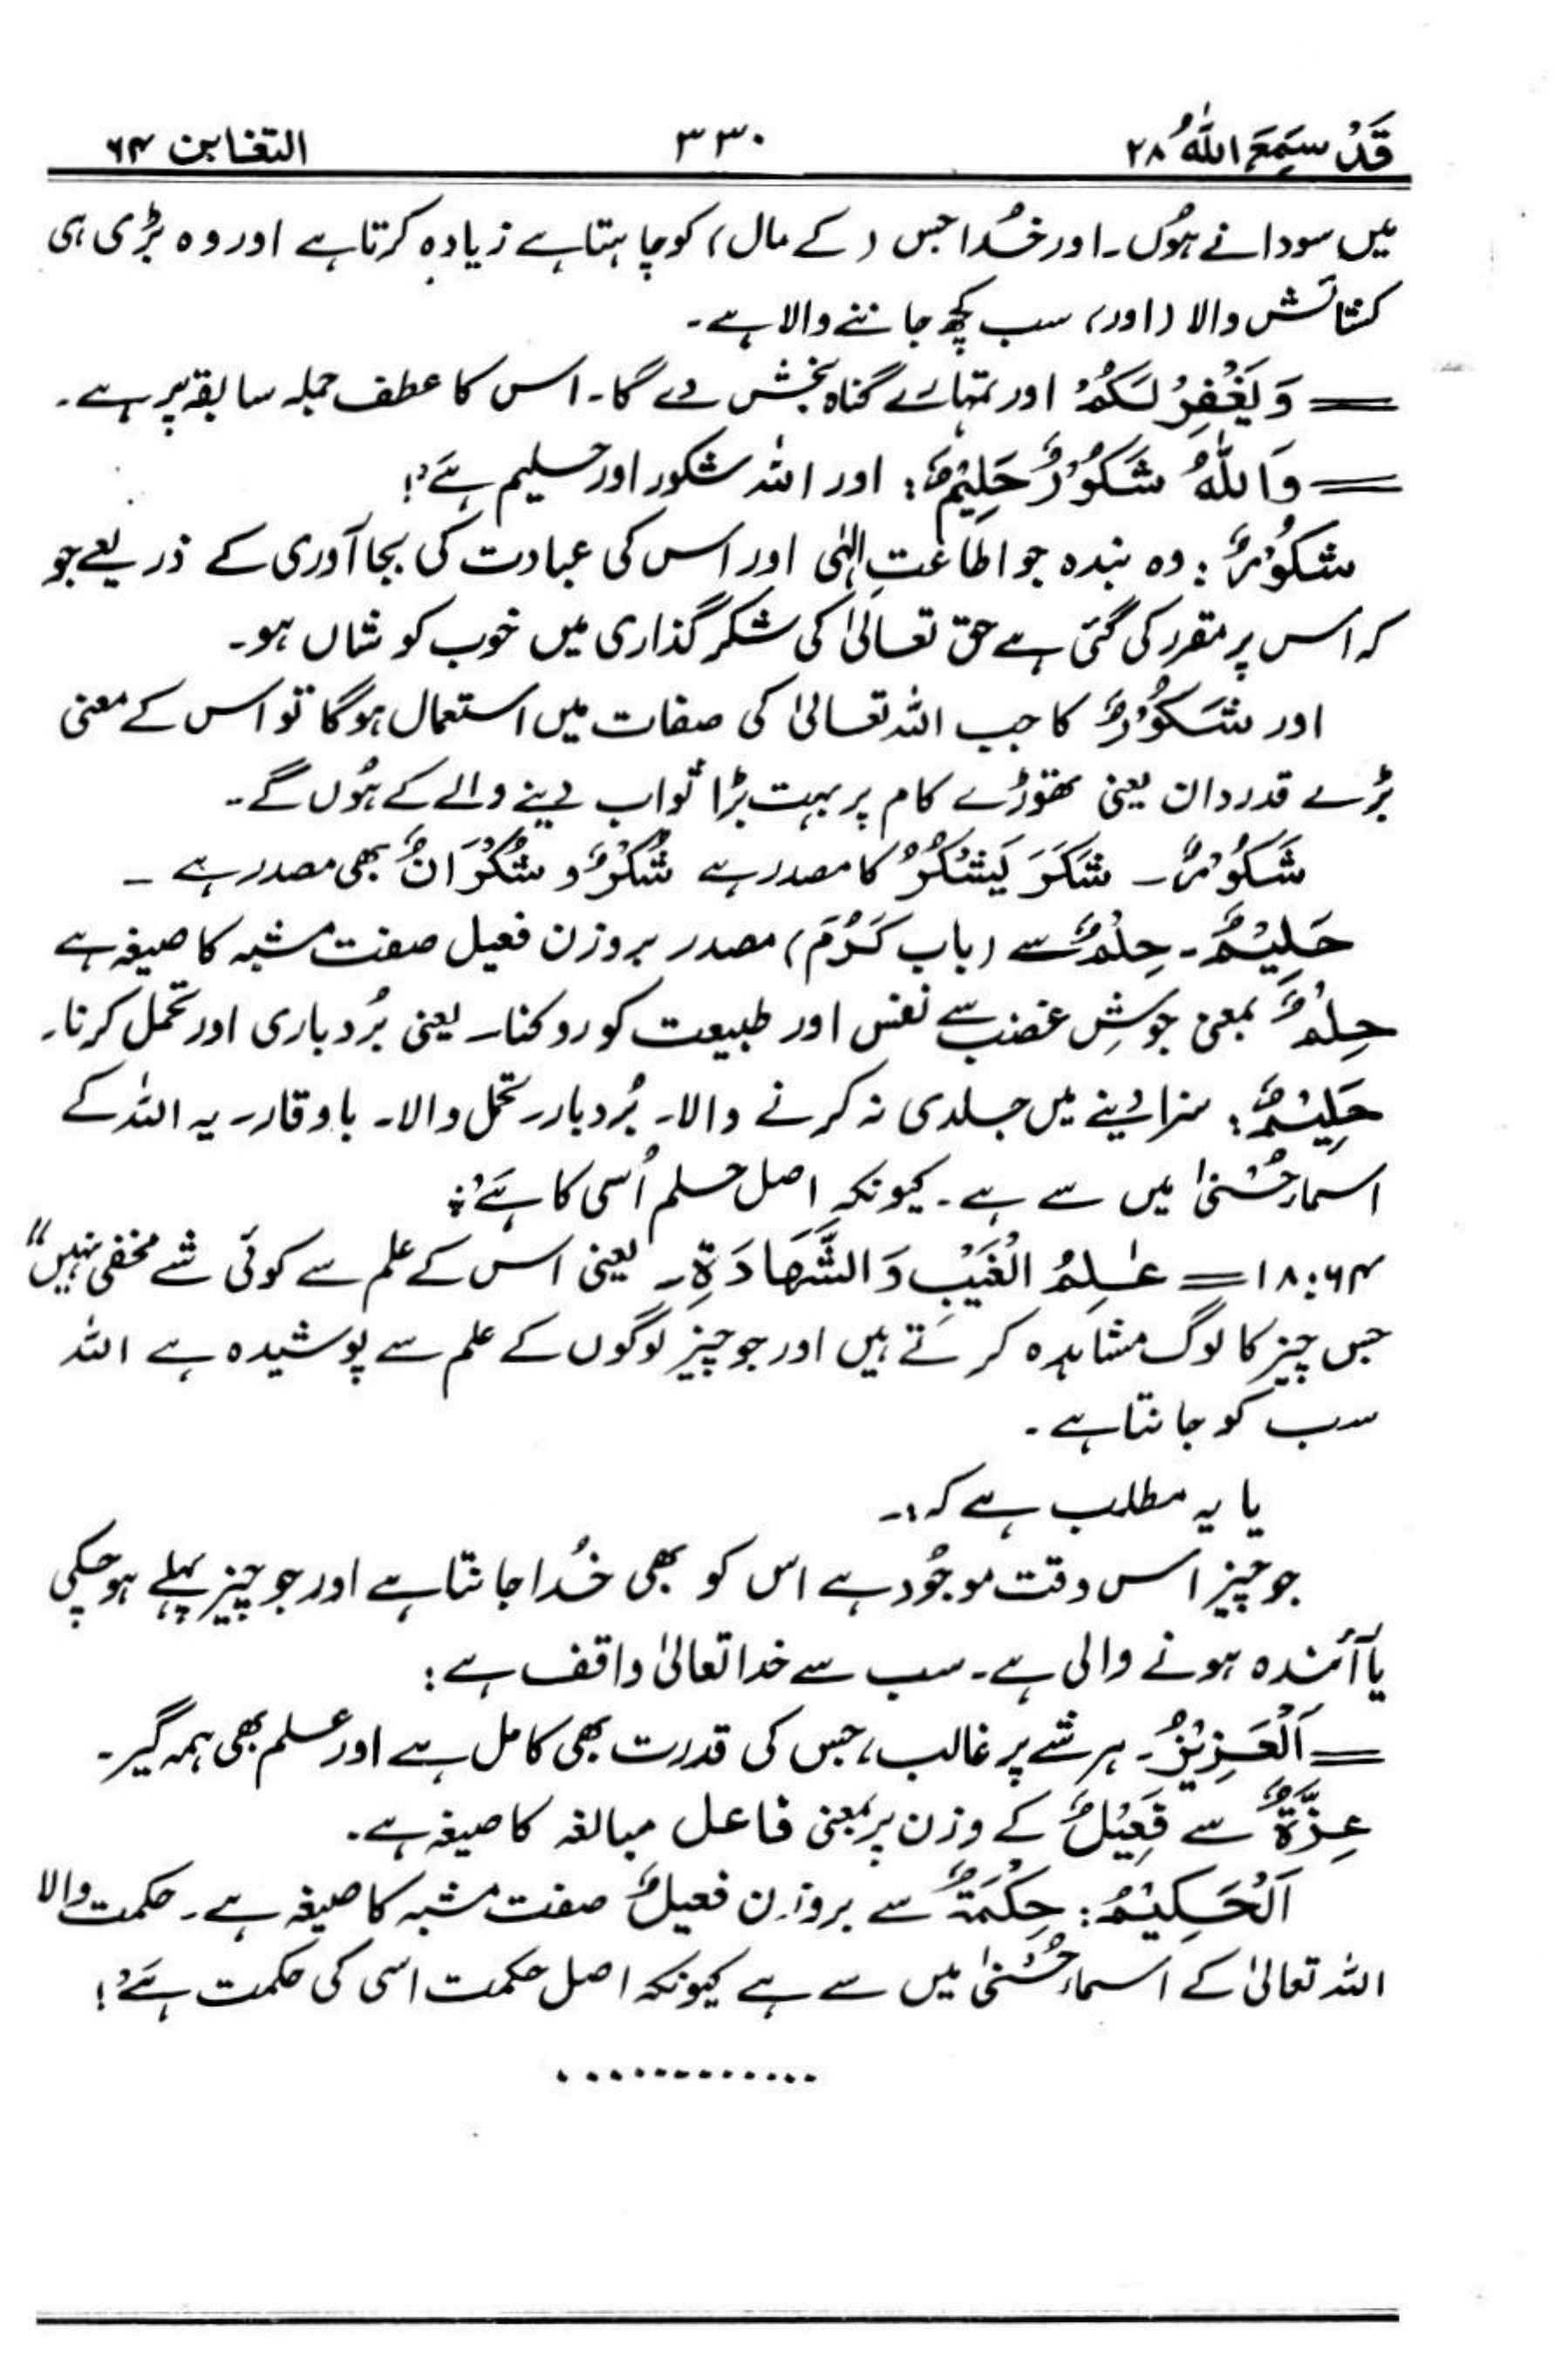 قَدْ سَمِعَ اللّٰهُ ۲۸
۳۳۰
التغابن ۶۴
میں سودانے ہوُں۔ اور خُدا جس (کے مال) کو چاہتا ہے زیادہ کرتا ہے اور وہ بڑی ہی
کشائش والا (اور) سب کچھ جاننے والا ہے۔
= وَيَغْفِرْ لَكُمْ اور تمہارے گناہ بخش دے گا۔ اس کا عطف جملہ سابقہ پر ہے۔
= وَاللّٰهُ شَكُوْرٌ حَلِيْمٌ: اور اللہ شکور اور حلیم ہے!
شَكُوْرٌ: وہ بندہ جو اطاعتِ الٰہی اور اس کی عبادت کی بجاآوری کے ذریعے جو
کہ اس پر مقرر کی گئی ہے حق تعالیٰ کی شکر گذاری میں خوب کوشاں ہو۔
اور شَكُوْرٌ کا جب اللہ تعالیٰ کی صفات میں استعمال ہوگا تو اس کے معنی
بڑے قدردان یعنی تھوڑے کام پر بہت بڑا ثواب دینے والے کے ہوُں گے۔
شَكُوْرٌ۔ شَكَرَ يَشْكُرُ کا مصدر ہے شُكْرٌ و شُكْرَانٌ بھی مصدر ہے ۔
حَلِيْمٌ۔ حِلْمٌ سے (باب كَرُمَ) مصدر بروزن فعیل صفت مشبہ کا صیغہ ہے
حِلْمٌ بمعنی جوشِ غضب سے نفس اور طبیعت کو روکنا۔ یعنی بُردباری اور تحمل کرنا۔
حَلِيْمٌ: سزا دینے میں جلدی نہ کرنے والا۔ بُردبار۔ تحمل والا۔ باوقار۔ یہ اللہ کے
اسماءِ حُسْنیٰ میں سے ہے۔ کیونکہ اصل حلم اُسی کا ہے؛
۶۴:۱۸ = عٰلِمُ الْغَيْبِ وَالشَّهَادَةِ۔ یعنی اس کے علم سے کوئی شے مخفی نہیں"
جس چیز کا لوگ مشاہدہ کرتے ہیں اور جو چیز لوگوں کے علم سے پوشیدہ ہے اللہ
سب کو جانتا ہے۔
یا یہ مطلب ہے کہ:۔
جو چیز اس وقت موجُود ہے اس کو بھی خُدا جانتا ہے اور جو چیز پہلے ہو چکی
یا آئندہ ہونے والی ہے۔ سب سے خدا تعالیٰ واقف ہے:
= اَلْعَزِيْزُ۔ ہر شے پر غالب، جس کی قدرت بھی کامل ہے اور علم بھی ہمہ گیر۔
عِزَّةٌ سے فَعِيْلٌ کے وزن پر بمعنی فاعل مبالغہ کا صیغہ ہے۔
اَلْحَكِيْمُ: حِكْمَةٌ سے بروزن فعیلٌ صفت مشبہ کا صیغہ ہے۔ حکمت والا
اللہ تعالیٰ کے اسماء حُسْنیٰ میں سے ہے کیونکہ اصل حکمت اسی کی حکمت ہے!
............